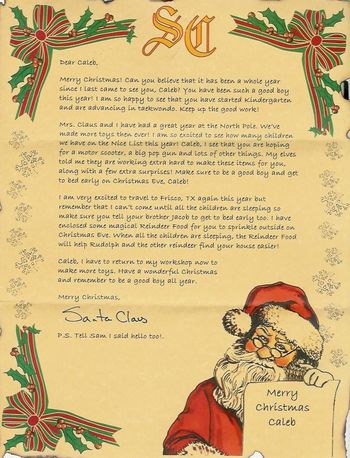 SC
Dear Caleb,
Merry Christmas! Can you believe that it has been a whole year
since I last came to see you, Caleb? You have been such a good boy
this year! I am so happy to see that you have started Kindergarten
and are advancing in taekwondo. Keep up the good work!
Mrs. Claus and I have had a great year at the North Pole. We've
made more toys then ever! I am so excited to see how many children
we have on the Nice List this year! Caleb, I see that you are hoping
for a motor scooter, a big pop gun and lots of other things. My elves
told me they are working extra hard to make these items for you,
along with a few extra surprises! Make sure to be a good boy and get
to bed early on Christmas Eve, Caleb!
I am very excited to travel to Frisco, TX again this year but
remember that I can't come until all the children are sleeping so
make sure you tell your brother Jacob to get to bed early too. I have
enclosed some magical Reindeer Food for you to sprinkle outside on
Christmas Eve. When all the children are sleeping, the Reindeer Food
will help Rudolph and the other reindeer find your house easier!
Caleb, I have to return to my workshop now to
make more toys. Have a wonderful Christmas
and remember to be a good boy all year.
Merry Christmas,
Santa Claus
P.S. Tell Sam I said hello too!.
Merry
Christmas
Caleb